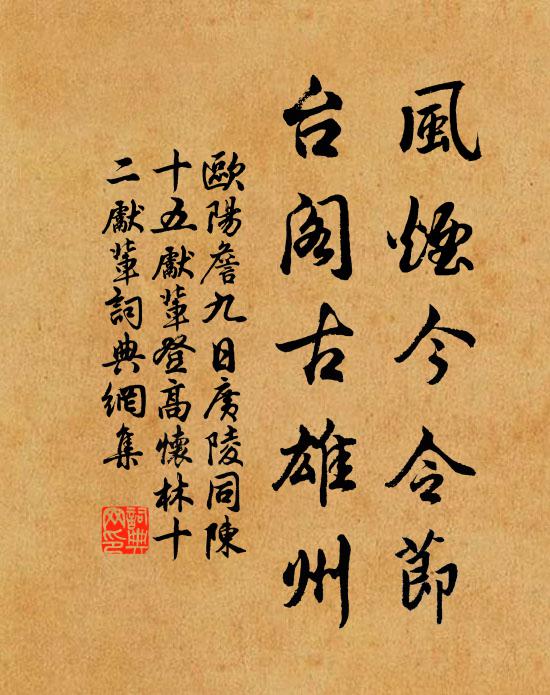 風煙今令節
台閣古雄州
歐陽詹九日廣陵同陳
十五獻輩登高懷林十
二獻輩詞典網集
詞典網印